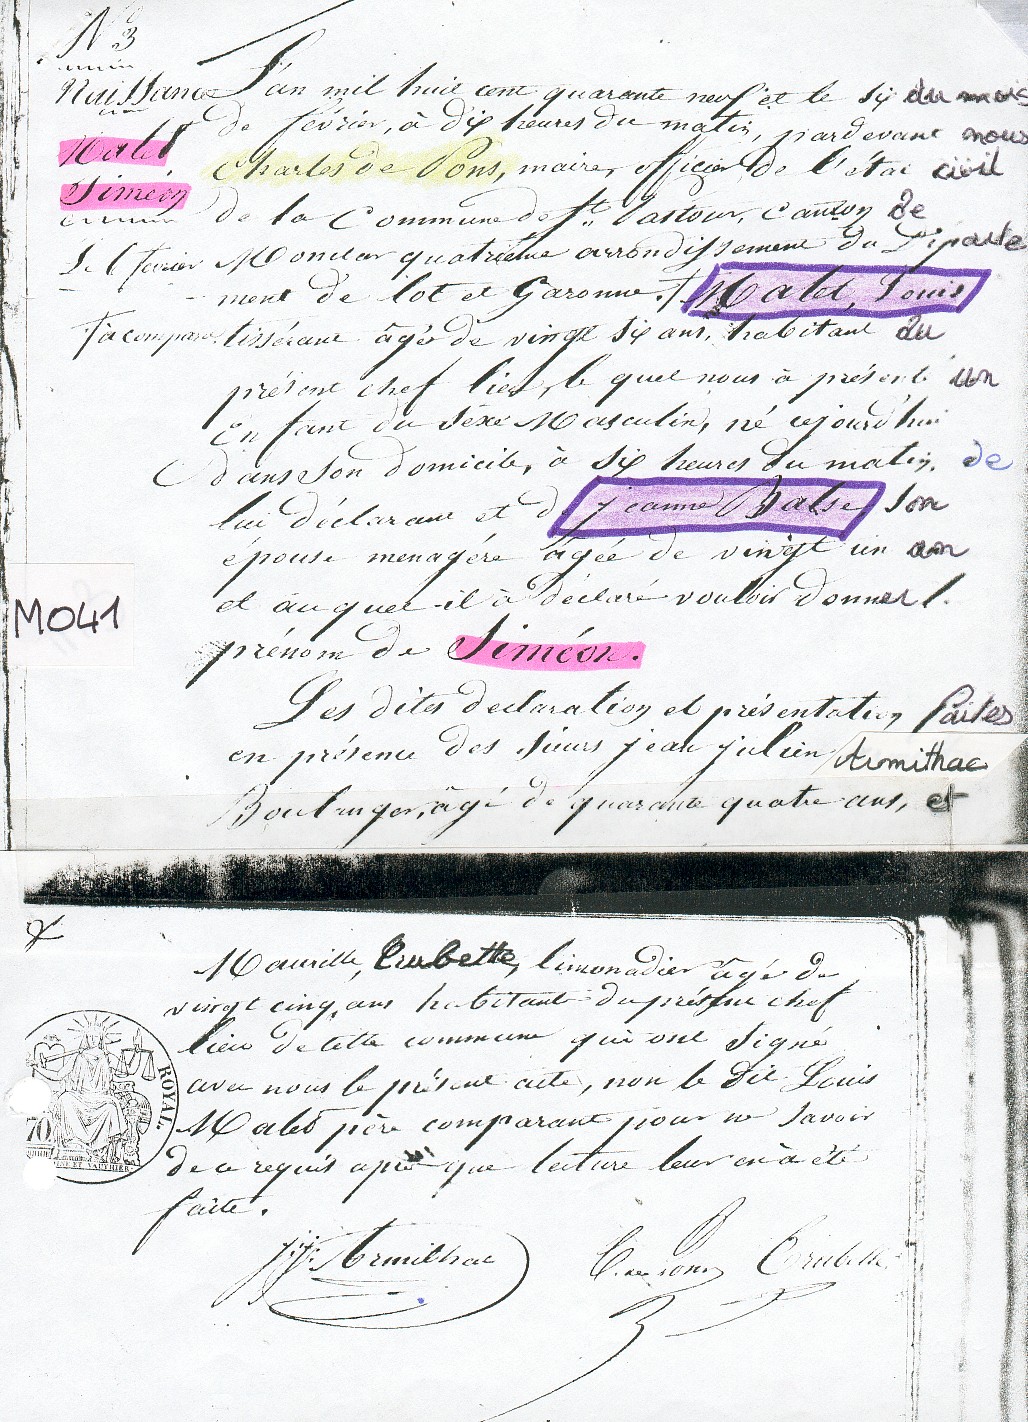 N° 3
Naissance
Malet
Siméon
Le 6 février
L'an mil huit cent quarante neuf et le six du mois
de février, à dix heures du matin, pardevant nous
Charles de Pons, maire, officier de l'état civil
de la Commune de St. Pastour, canton de
Monclar quatrième arrondissement du Départe
ment de lot et Garonne. † Malet, Louis
† a comparu
tisserant âgé de vingt six ans, habitant du
présent chef lieu, le quel nous à présenté un
enfant du sexe Masculin, né cejourd'hui
dans son domicile, à six heures du matin, de
lui déclarant et de jeanne Balse, son
épouse menagère âgée de vingt un an
et auquel il à déclaré vouloir donner l.
prénom de Siméon.
M041
Les dites declaration et présentation faites
en présence des sieurs jean julien Armithac
Boulanger, âgé de quarante quatre ans, et
Maurille, Crubette, limonadier âgé de
vingt cinq ans habitant du présent chef
lieu de cette commune qui ont signé
avec nous le présent acte, non le dit Louis
Malet père comparant pour ne savoir
de ce requis après que lecture leur en à été
faite.
ROYAL.
70
ET VAUTHIER
J.J. Armithac
C. de Pons
Crubette